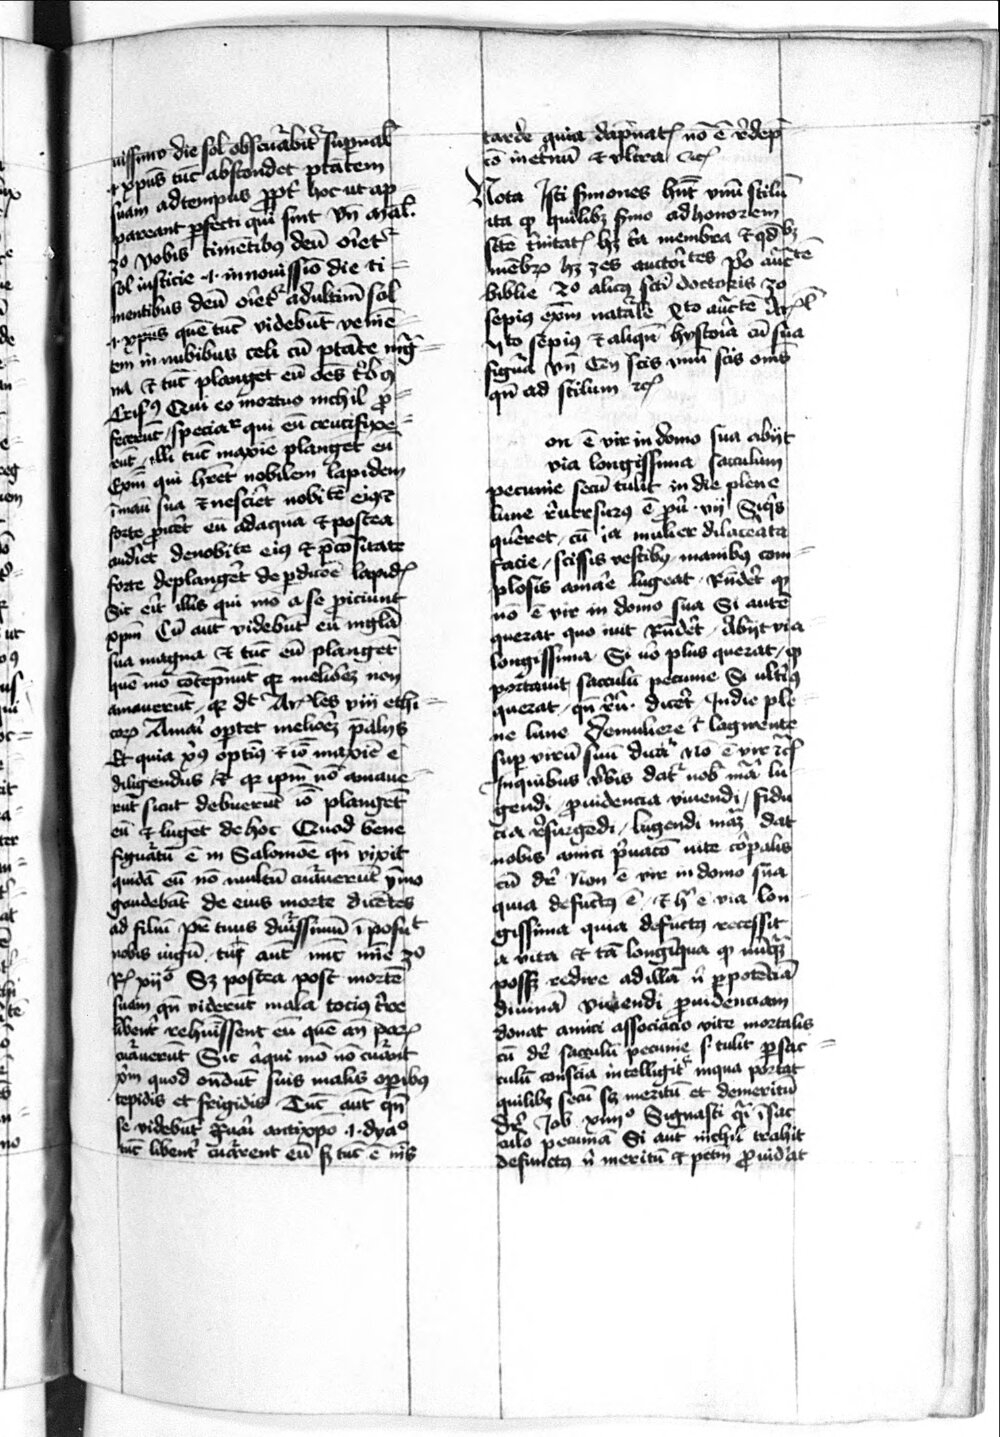 uissimo die sol obscurabitur supnal
.i. xpus tuc abscondet ptatem
suam ad tempus ppt hoc ut ap
pareant pfecti qui sint Vn mal.
3o vobis timetibus deu oriet
sol iusticie .i. in nouissio die ti
mentibus deu oriet ad ultimu sol
.i. xpus que tuc videbut venie
tem in nubibus celi cu ptate mg
na Et tuc planget eu oes
Qui eo mortuo nichil p
fecerut / speciar qui eu crucifixe
rut / illi tuc maxie planget eu
Exm qui hret nobilem lapidem
i manu sua et nesciret nobite eius
forte piceret eu ad aqua et postea
audiet de nobite eius et pcositate
forte deplanget de pdicoe lapid
Sic erit illis qui mo a se piciunt
xpm Cu aut videbut eu in gla
sua magna Et tuc eu planget
que mo cotepnut qr meliore non
amauerut / qr dt Ar-les viii ethi
corp Amari optet meliore
Et quia xus optius et io maxie e
diligendus Et qr ipm no amaue
rut sicut debuerut io planget
eu et luget de hoc Quod bene
figuratu e in Salomoe qn vixit
quida eu no multu curauerut ymo
gaudebat de eius morte dicetes
ad filiu Pr tuus durissimu iposuit
nobis iugu . tu aut 3o
R xiio Sz postea post morte
suam qn viderut mala tocius tre
libent rehuissent eu que an
curauerut Sic aqui mo no curant
xm quod ondut suis malis opibus
tepidis et frigidis Tuc aut qn
se videbut antixpo .i. dyao
tuc libent curarent eu s tuc e nis
tarde quia dapnat no e rdep
co infernu et vltra etc
Nota Isti smones hnt vnu stilu
ita qp quilibz smo ad honorem
scte trinitat hz tria membra et qdbz
mebro hz 3es auctoites po aucte
biblie 2o alicus scti doctoris 3o
sepius exm natale 4to aucte
5to sepius et aliqn hystoria cu sua
figura Vn scis vnu scis oms
qn ad stilum etc
on e vir in domo sua abijt
via longissima sacculum
pecunie secu tulit in die plene
lune reursurus e pu . vij Siqs
quereret / cu ia mulier dilacerata
facie / scissis vestibus / manibus com
plosis amare lugeat . Rnderet qp
no e vir in domo sua Si aute
querat quo iuit Rnderet / Abijt via
longissima Si uo plus querat / qp
portauit sacculu pecunie Si ultius
querat / qn . diceret Indie ple
ne lune De muliere lagmente
sup viru suu No e vir etc
In quibus vbis datur nob ma lu
gendi puidencia viuendi / fidu
cia resurgedi / lugendi maz dat
nobis amici puaco uite copalis
cu dr Non e vir in domo sua
quia defuctus e / Et h e via lon
gissima quia defuctus recessit
a vita et ta longiqua qp nuqz
possz redire ad illa n p potecia
diuina Viuendi puidenciam
donat amici associacio vite mortalis
cu dr sacculu pecunie s tulit p sac
culu conscia intelligit in qua portat
quilibz secu sz meritu et demeritu
dr Job xiiiio Signasti qi i sac
culo peccata Si aut nichil trahit
defunctus n meritu et pctm puideat